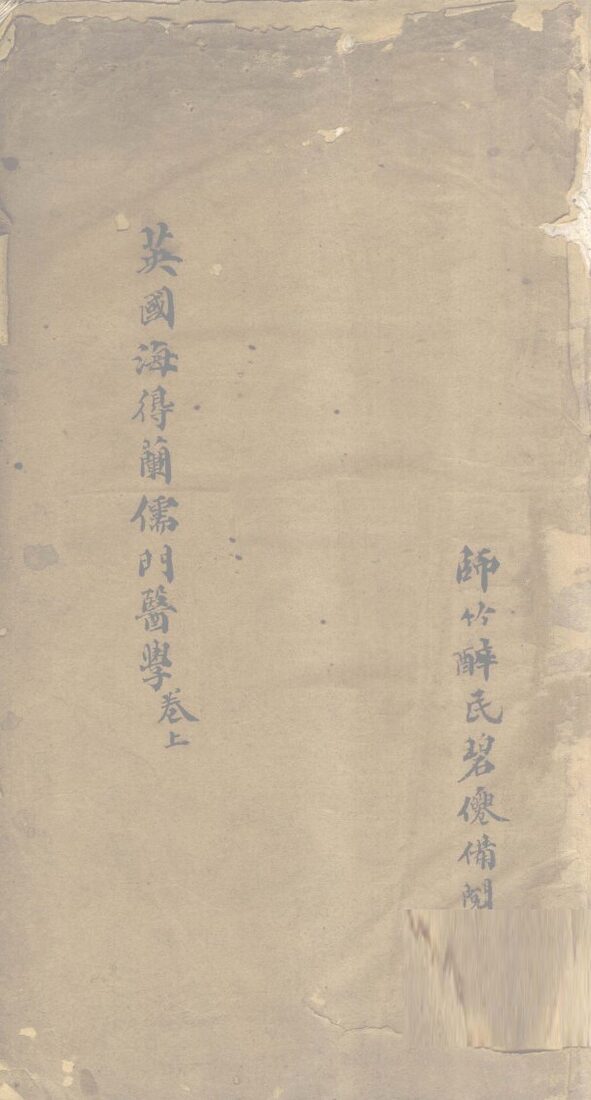 師竹醉民碧僊備閱
英國海得蘭儒門醫學卷上